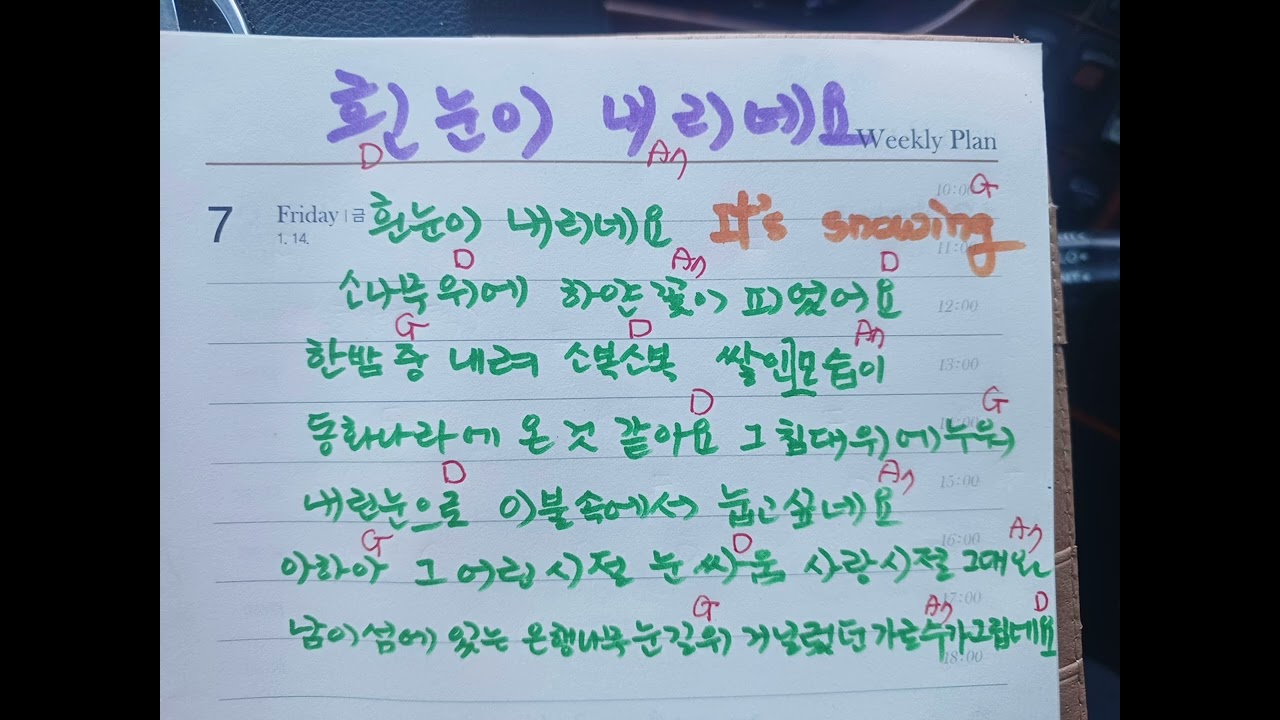 흰눈이 내리네요
Weekly Plan
D An
10:00 G
7 Friday 금 흰눈이 내리네요 It's snowing
1. 14. 11:00
D An D
소나무위에 하얀꽃이 피었어요 12:00
G D An
한밤중 내려 소복소복 쌀인모습이 13:00
D G
동화나라에 온것 같아요 그침대위에누워
D An 15:00
내린눈으로 이불속에서 눕고싶네요
G D 16:00 An
아하아 그 어린시절 눈싸움 사랑시절 그대와
G 17:00 An D
남이섬에 있는 은행나무눈길위 거닐렀던 가로수가그립데요
18:00